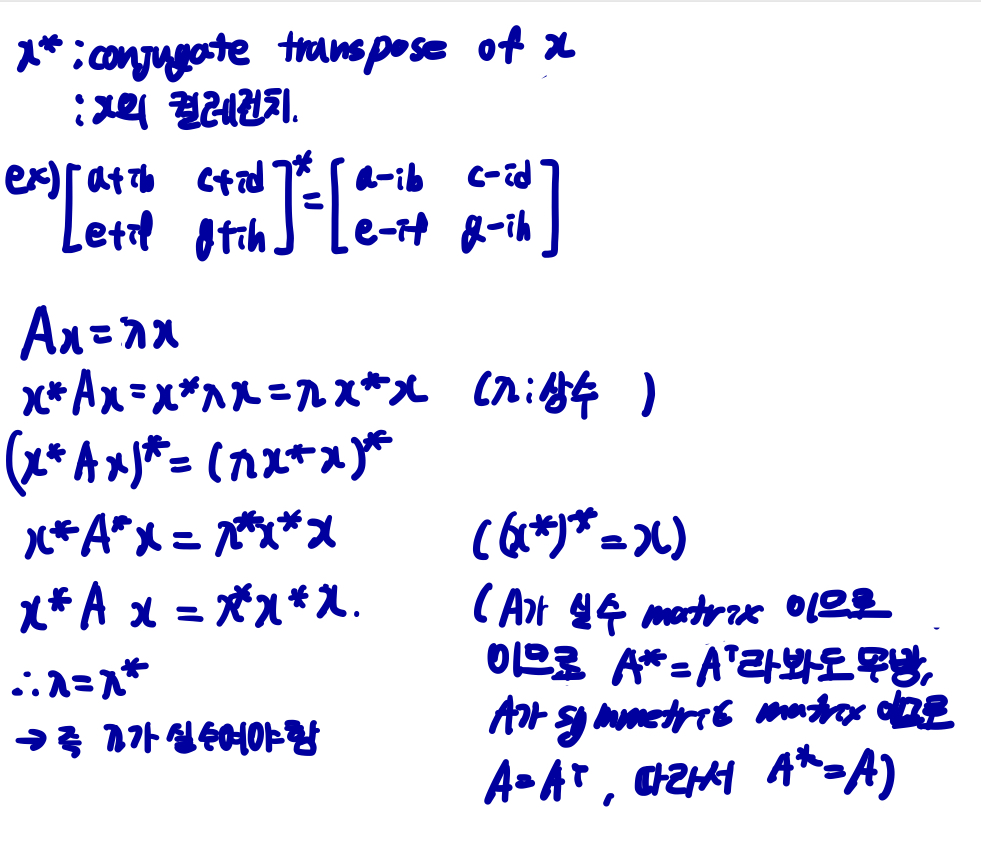 x* : conjugate transpose of x
: x의 켤레전치.
ex) [a+ib c+id
e+if g+ih]* = [a-ib c-id
e-if g-ih]
Ax = λx
x*Ax = x*λx = λx*x (λ: 상수 )
(x*Ax)* = (λx*x)*
x*A*x = λ*x*x ((x*)* = x)
x*A x = λ*x*x. (A가 실수 matrix 이므로
이므로 A* = Aᵀ라봐도 무방,
∴ λ = λ*
A가 symmetric matrix 이므로
→ 즉 λ가 실수여야함
A = Aᵀ, 따라서 A* = A)